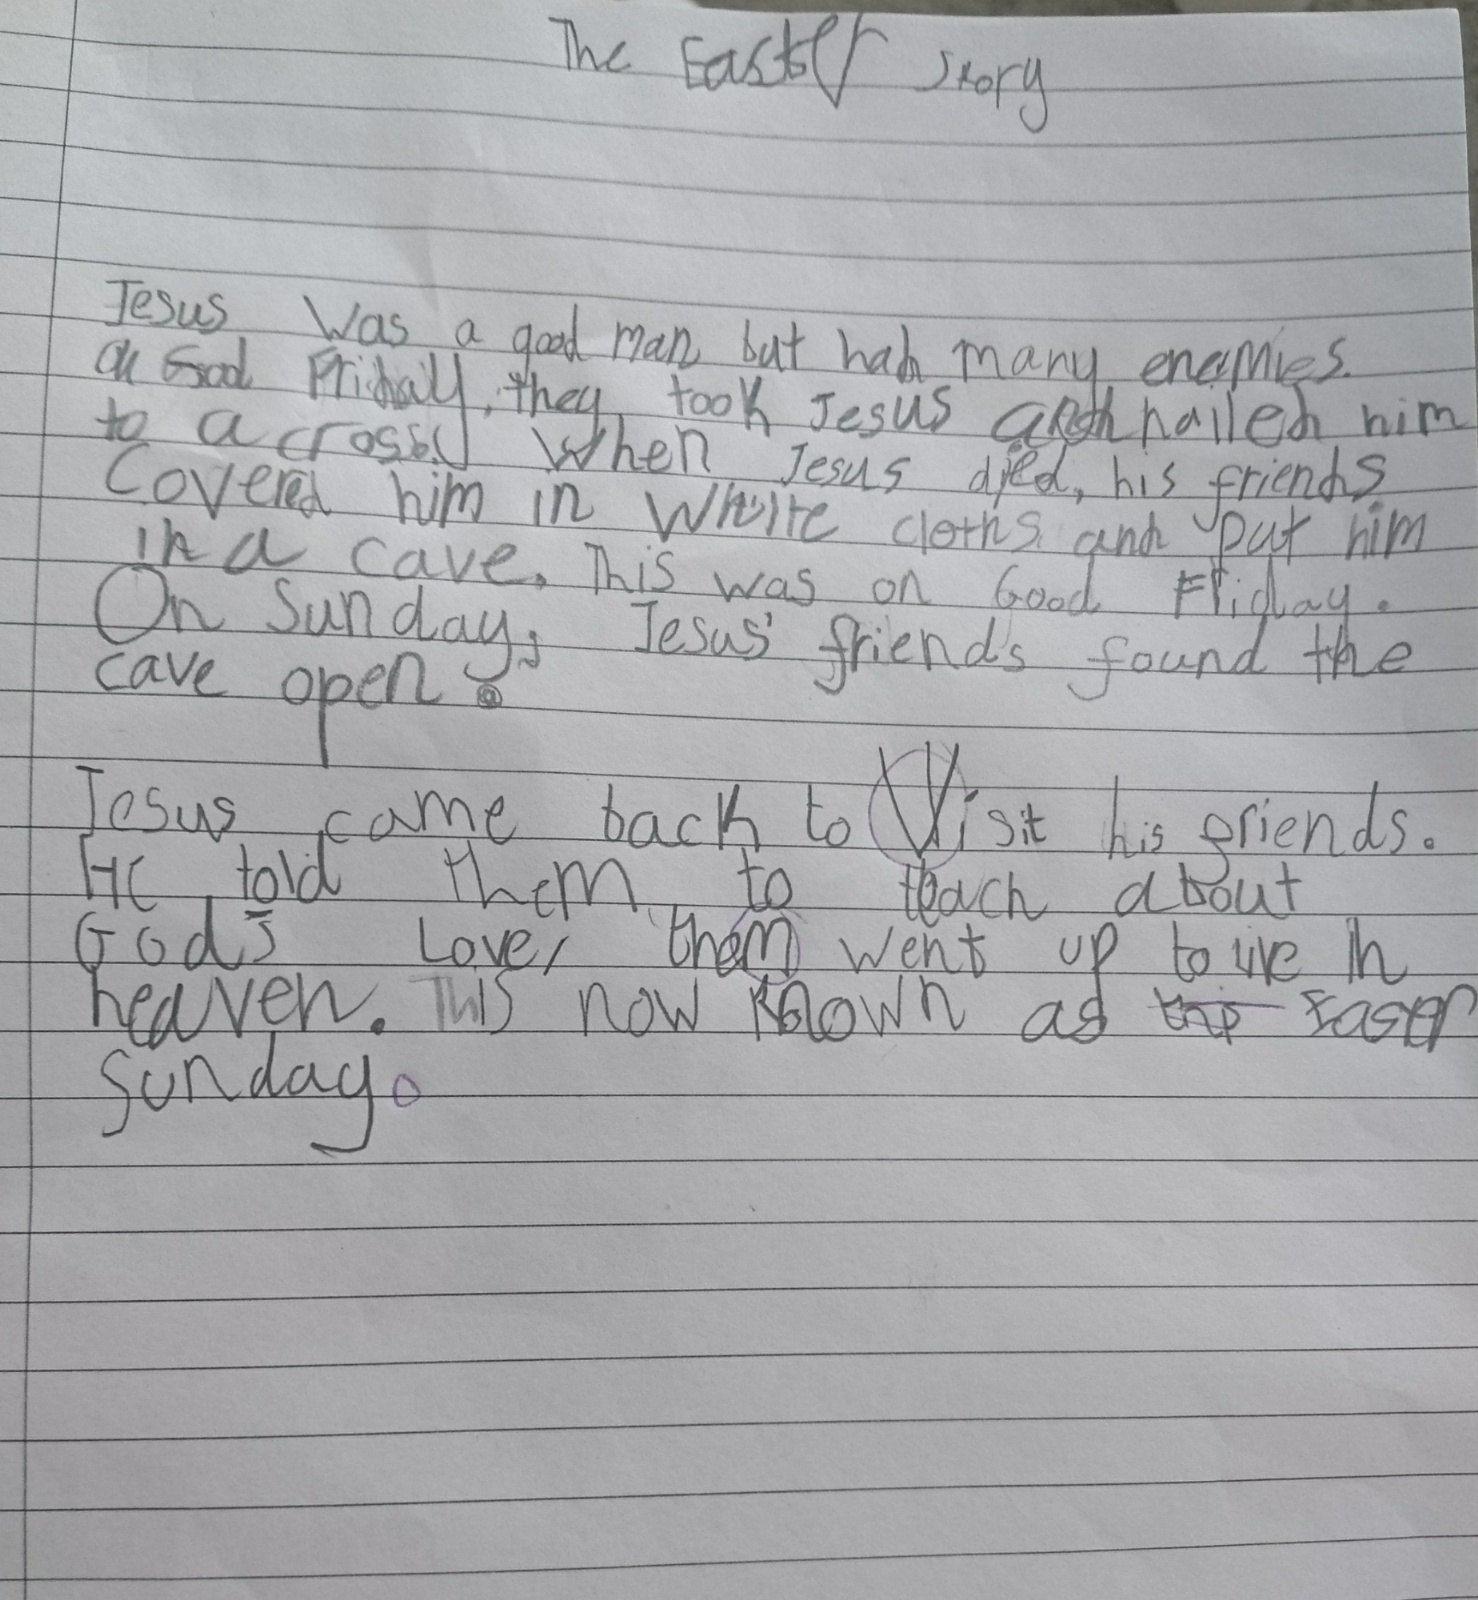 The Easter Story
Jesus Was a good man but had many enemies.
on God Friday, they took Jesus and nailed him
to a cross. When Jesus died, his friends
Covered him in White cloths and put him
in a cave. This was on Good Friday.
On Sunday, Jesus' friends found the
cave open.
Jesus came back to Visit his friends.
He told them to teach about
God's Love, them went up to live in
heaven. This now known as Easer
Sunday.